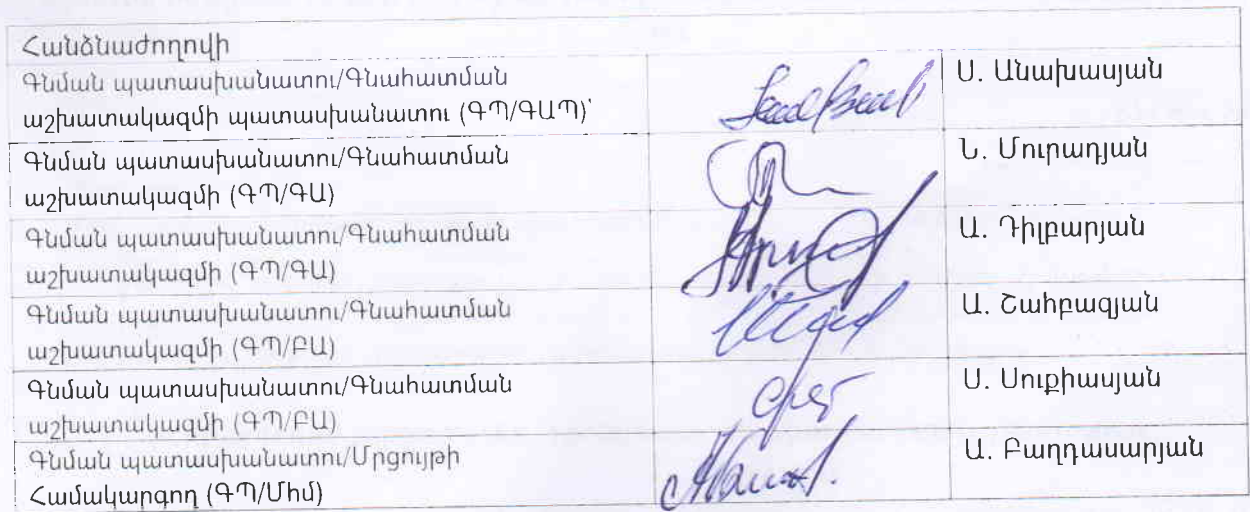 Հանձնաժողովի
Գնման պատասխանատու/Գնահատման
աշխատակազմի պատասխանատու (ԳՊ/ԳԱՊ)՝
Ս. Անախասյան
Գնման պատասխանատու/Գնահատման
աշխատակազմի (ԳՊ/ԳԱ)
Ն. Մուրադյան
Գնման պատասխանատու/Գնահատման
աշխատակազմի (ԳՊ/ԳԱ)
Ա. Դիլբարյան
Գնման պատասխանատու/Գնահատման
աշխատակազմի (ԳՊ/ԲԱ)
Ա. Շահբազյան
Գնման պատասխանատու/Գնահատման
աշխատակազմի (ԳՊ/ԲԱ)
Ս. Սուքիասյան
Գնման պատասխանատու/Մրցույթի
Համակարգող (ԳՊ/Մհմ)
Ա. Բաղդասարյան